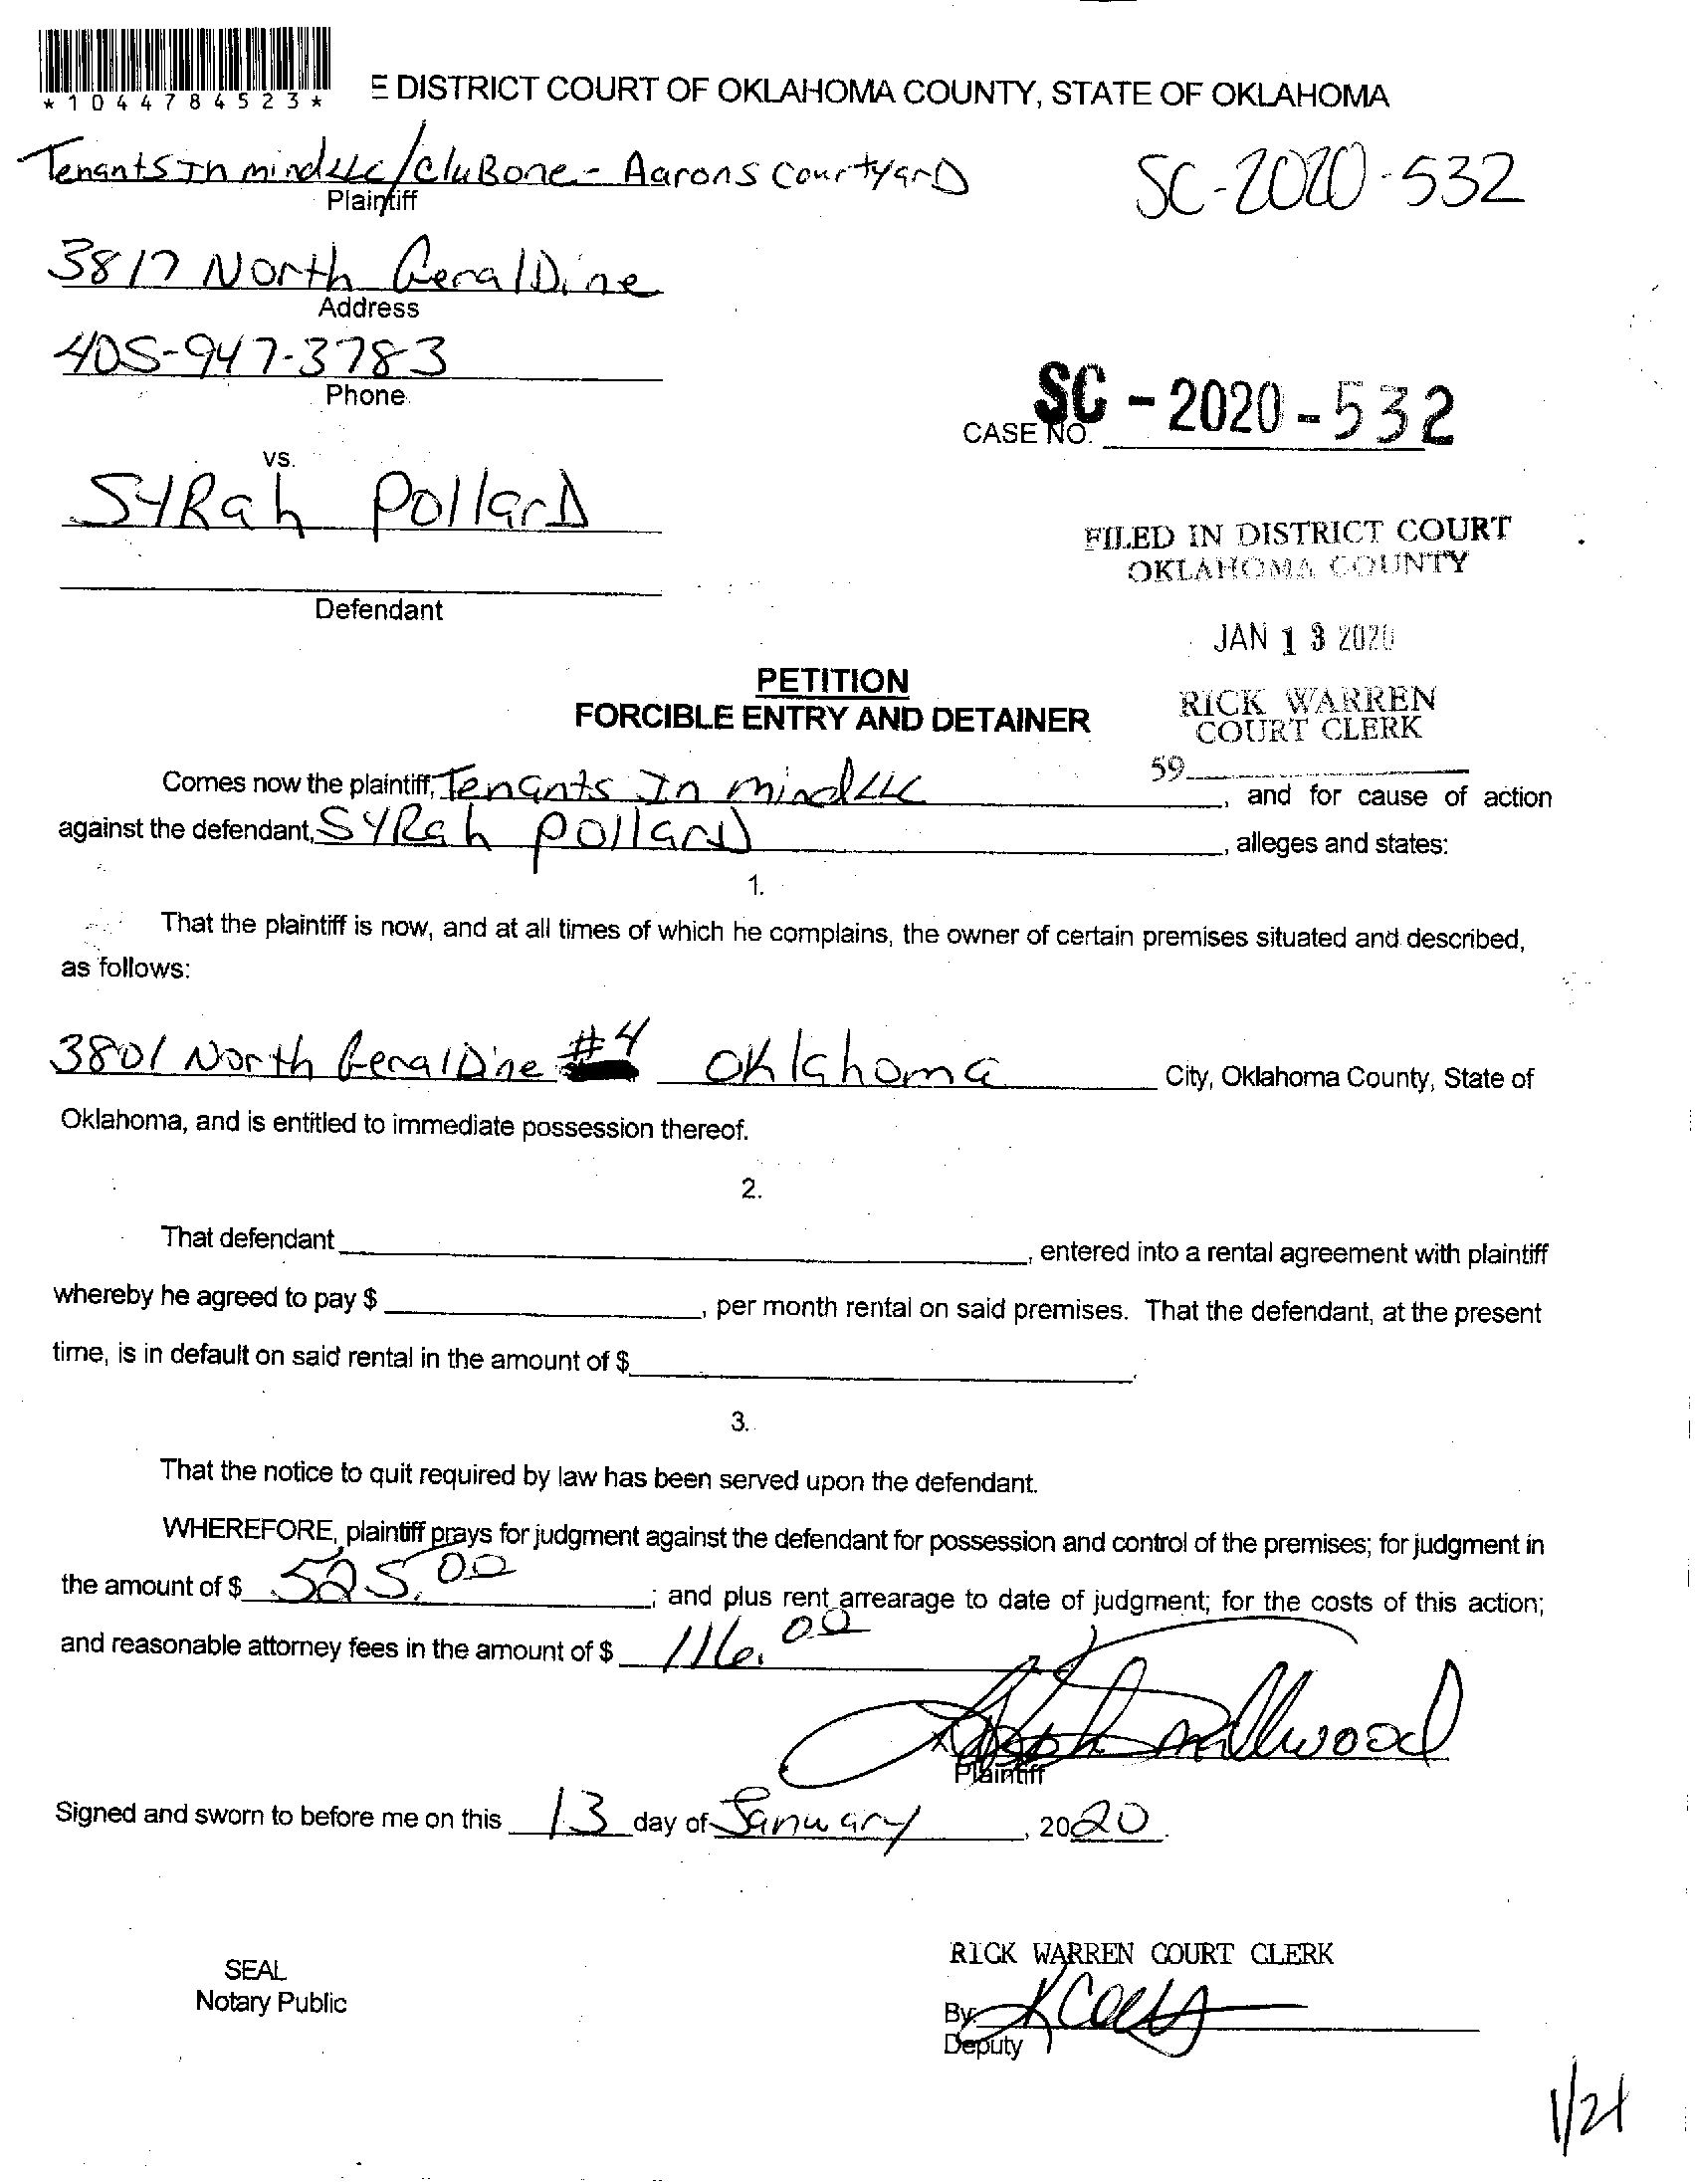 *1044784523*
E DISTRICT COURT OF OKLAHOMA COUNTY, STATE OF OKLAHOMA
Tenants In mind LLC/CluBone - Aarons CourtyarD
SC-2020-532
Plaintiff
3817 North GeralDine
Address
405-947-3783
Phone
SC - 2020 - 532
CASE NO.
vs.
SYRah PollarD
FILED IN DISTRICT COURT
OKLAHOMA COUNTY
Defendant
JAN 13 2020
PETITION
FORCIBLE ENTRY AND DETAINER
RICK WARREN
COURT CLERK
59
Comes now the plaintiff, Tenants In mind LLC, and for cause of action
against the defendant, SYRah pollarD, alleges and states:
1.
That the plaintiff is now, and at all times of which he complains, the owner of certain premises situated and described,
as follows:
3801 North GeralDine #4 Oklahoma City, Oklahoma County, State of
Oklahoma, and is entitled to immediate possession thereof.
2.
That defendant , entered into a rental agreement with plaintiff
whereby he agreed to pay $ , per month rental on said premises. That the defendant, at the present
time, is in default on said rental in the amount of $ .
3.
That the notice to quit required by law has been served upon the defendant.
WHEREFORE, plaintiff prays for judgment against the defendant for possession and control of the premises; for judgment in
the amount of $ 525.00 ; and plus rent arrearage to date of judgment; for the costs of this action;
and reasonable attorney fees in the amount of $ 116.00
Smallwood
Plaintiff
Signed and sworn to before me on this 13 day of January, 2020.
RICK WARREN COURT CLERK
SEAL
Notary Public
By
Deputy
1/21